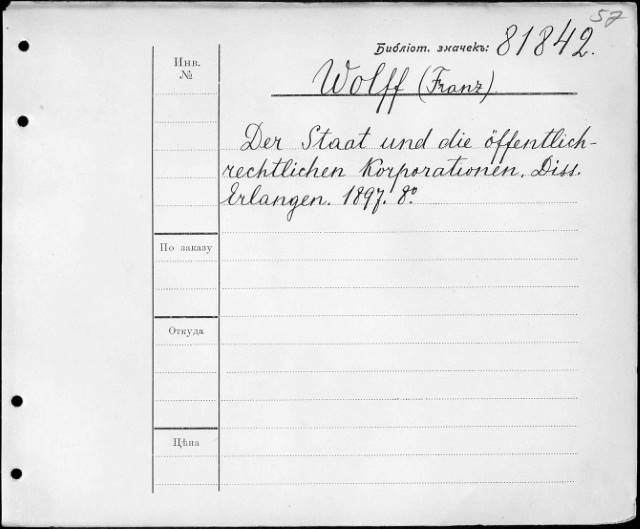 57
Библіот. значекъ: 81842.
Инв.
№
Wolff (Franz)
Der Staat und die öffentlich-
rechtlichen Korporationen. Diss.
Erlangen. 1897. 8°
По заказу
Откуда
Цѣна